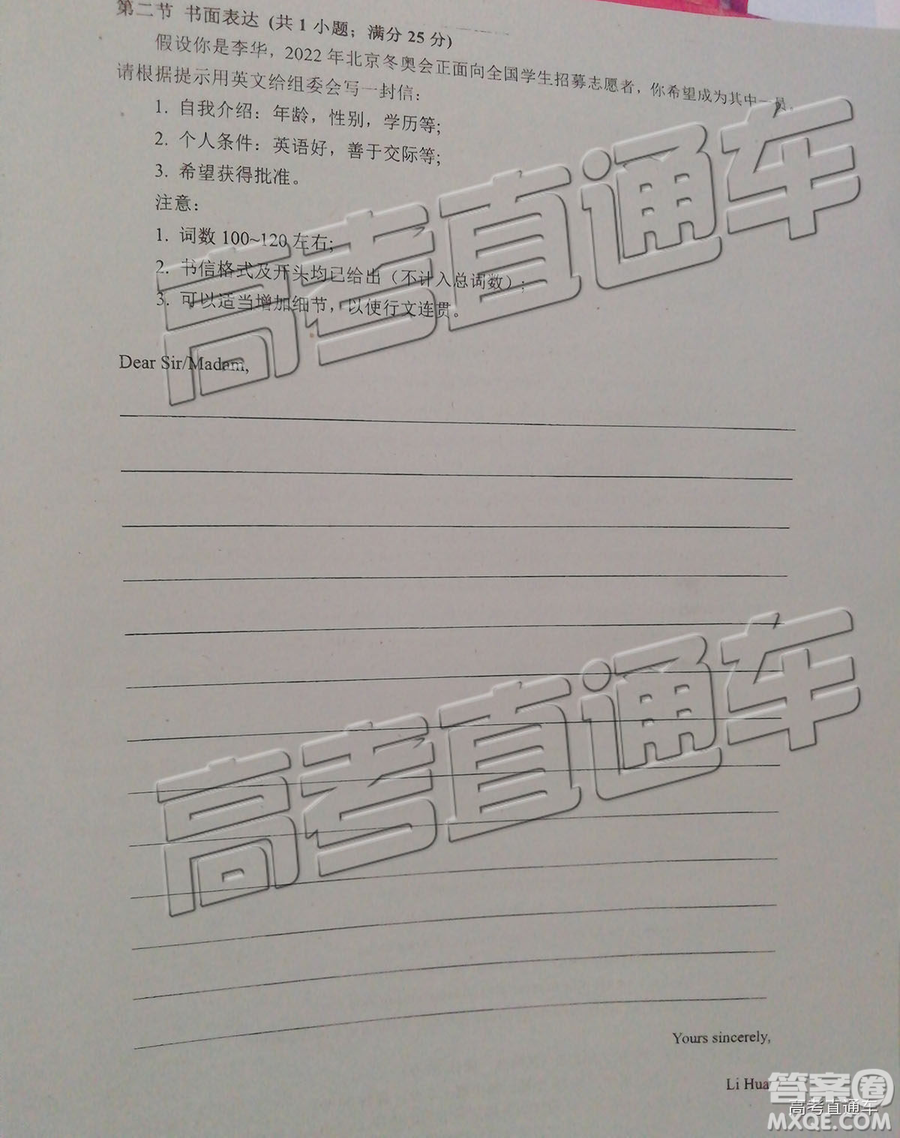 第二节 书面表达 (共 1 小题；满分 25 分)
假设你是李华，2022 年北京冬奥会正面向全国学生招募志愿者，你希望成为其中一员，
请根据提示用英文给组委会写一封信：
1. 自我介绍：年龄，性别，学历等；
2. 个人条件：英语好，善于交际等；
3. 希望获得批准。
注意：
1. 词数 100~120 左右；
2. 书信格式及开头均已给出（不计入总词数）；
3. 可以适当增加细节，以使行文连贯。
高考直通车
Dear Sir/Madam,
高考直通车
Yours sincerely,
Li Hua
答案圈
高考直通车
MXQE.COM